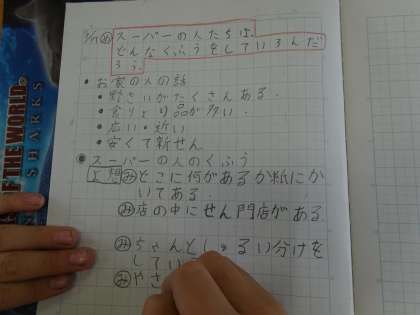 9/17 め スーパーの人たちは、
どんなくふうをしているんだ
ろう。
・お家の人の話
・野さいがたくさんある。
・食りょう品が多い。
・広い・近い
・安くて新せん
・スーパーの人のくふう
予想 み どこに何があるか紙にか
いてある
み 店の中にせん門店がある。
み ちゃんとしゅるい分けを
してい
み やさ
OF THE WORLD
SHARKS